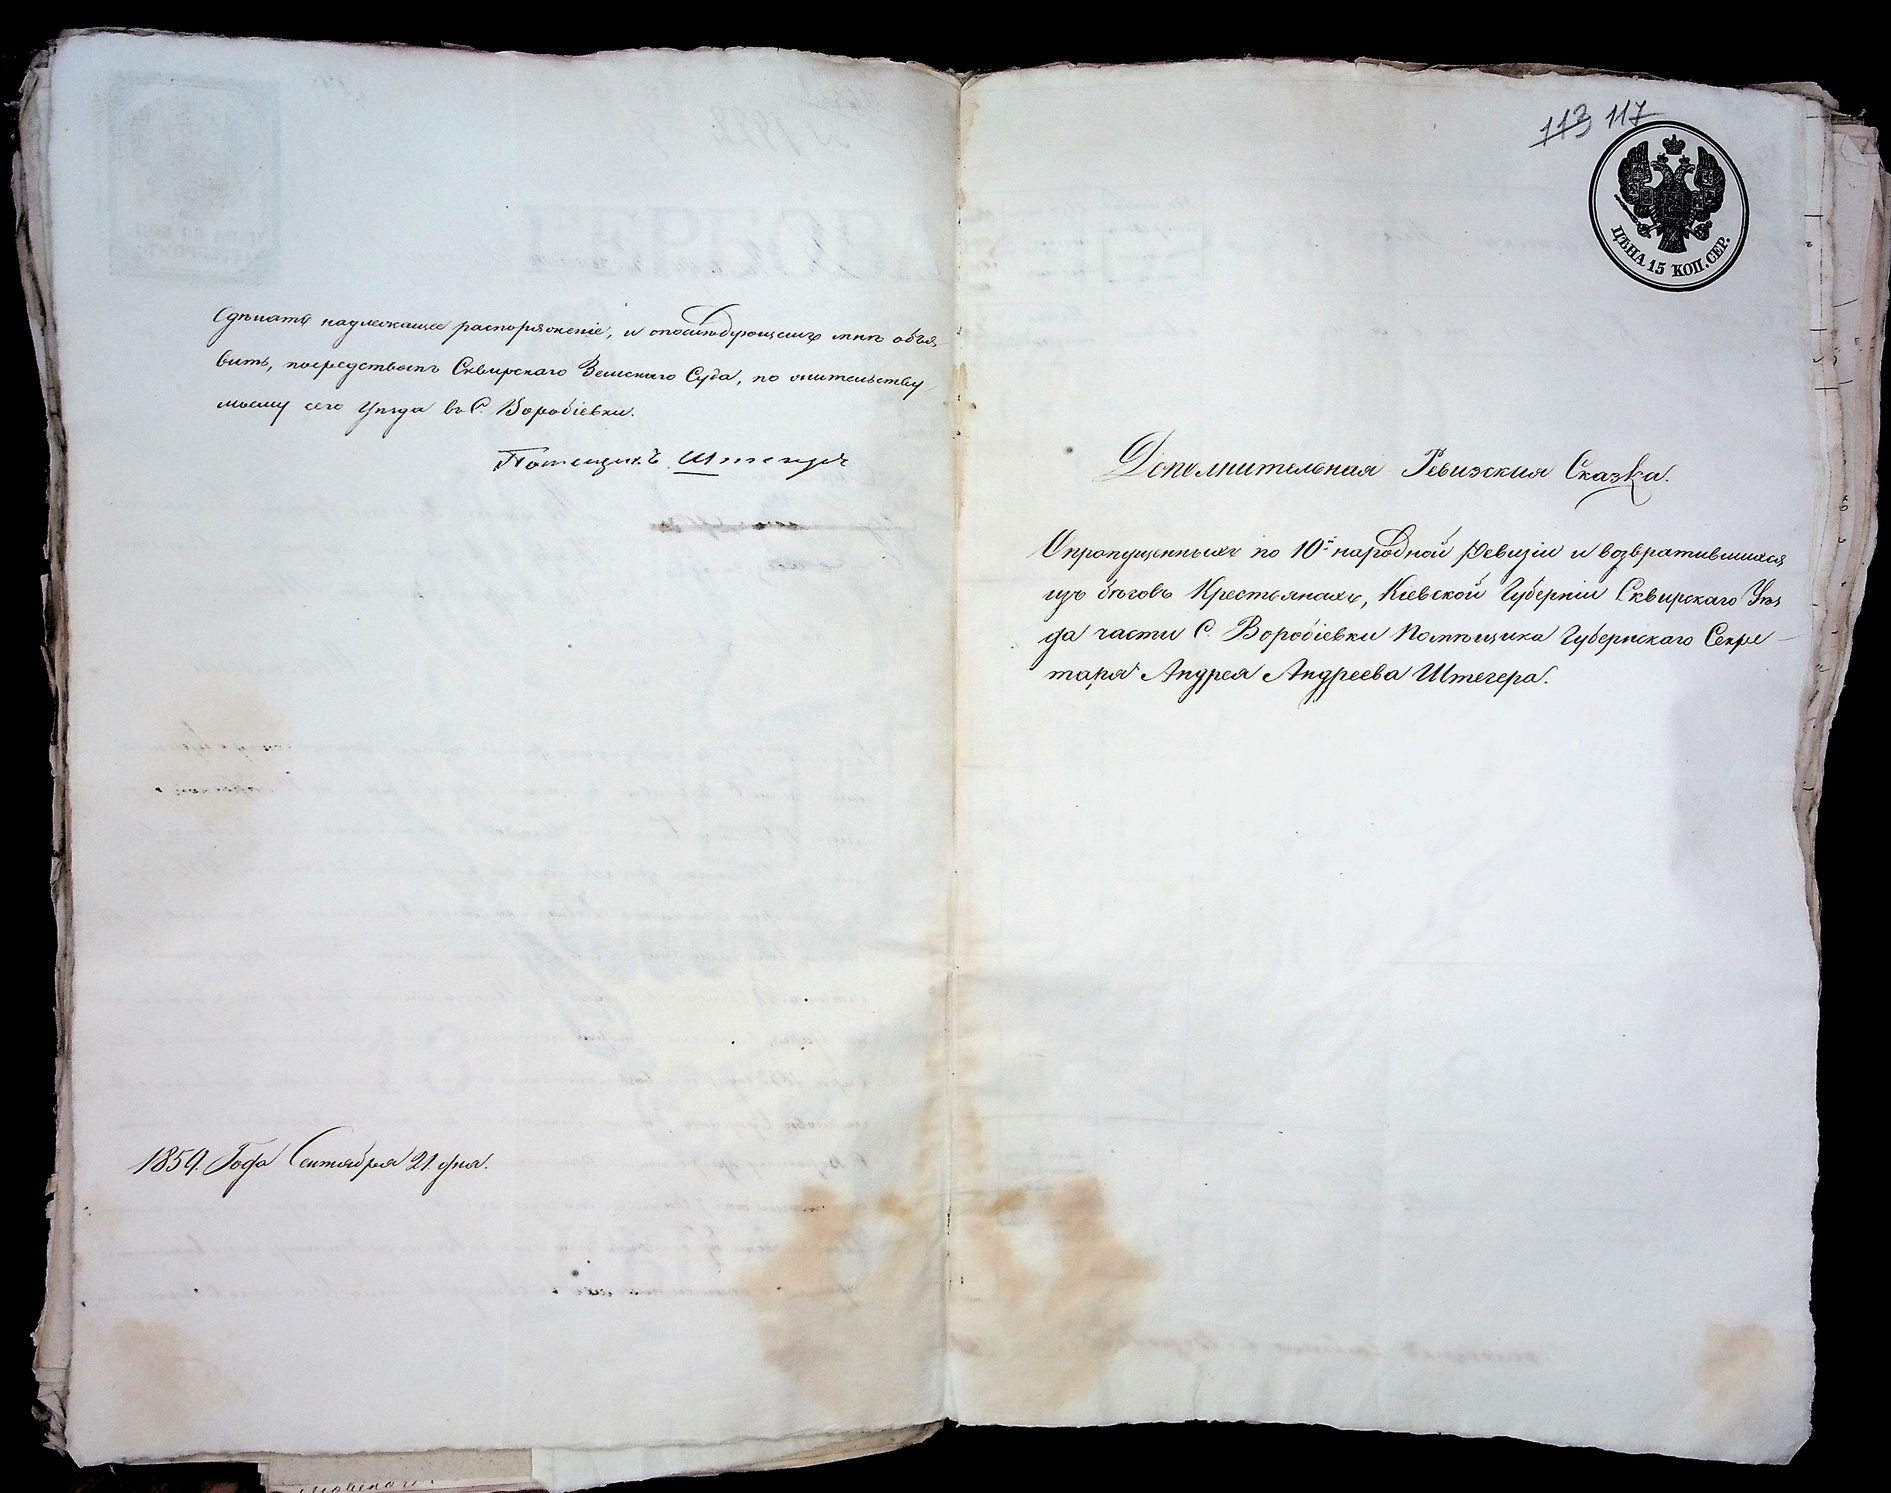 Сдѣлать надлежащее распоряженіе, и опослѣдующемъ мнѣ объя,
вить, посредствомъ Сквирскаго Земскаго Суда, по жительству
моему сего Уѣзда въ С. Воробіевки.
Помещикъ Штегеръ
1859. Года Сентября 21 дня.
113 117
ЦѢНА 15 КОП. СЕР.
Дополнительная Ревизския Сказка.
Опропущенныхъ по 10й народной ревизіи и возвратившихся
изъ бѣговъ Крестьянахъ, Кіевской Губерніи Сквирскаго Уѣз
да части С. Воробіевки Помѣщика Губернскаго Секре
таря Андрея Андреева Штегера.